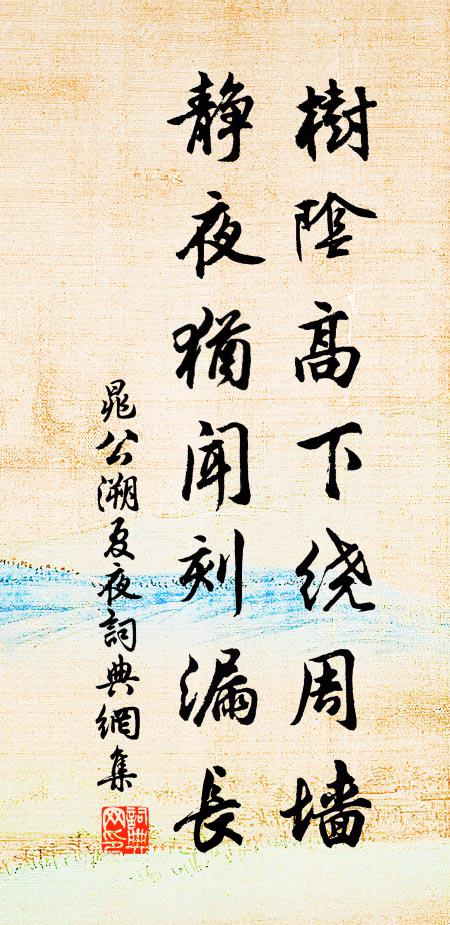 樹陰高下绕周墙
静夜猶闻刻漏長
晁公溯夏夜詞典網集
詞典网印